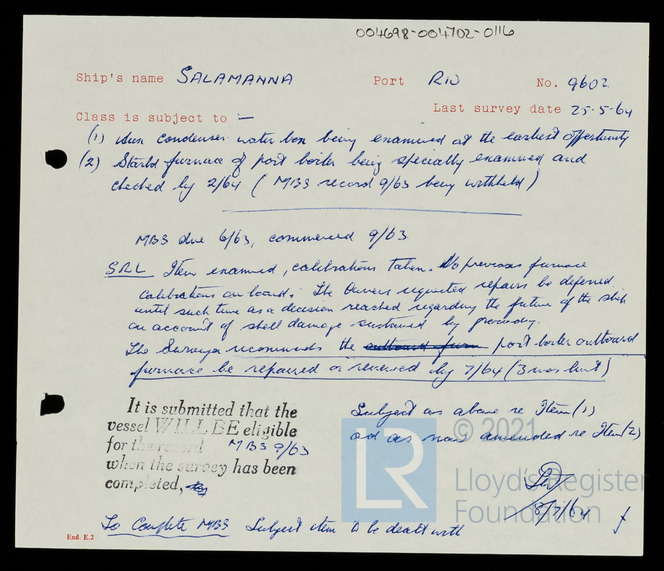 004698-004702-0116
Ship's name SALAMANNA Port RIO No. 9602
Last survey date 25-5-64
Class is subject to :-
(1) Main condenser water box being examined at the earliest opportunity
(2) Starbd furnace of port boiler being specially examined and
checked by 2/64 (MBS record 9/63 being withheld)
MBS due 6/63, commenced 9/63
SRL Item examined, calibrations taken. No previous furnace
calibrations on board. The Owners requested repairs be deferred
until such time as a decision reached regarding the future of the ship
on account of shell damage sustained by grounding.
The Surveyor recommends the outboard furn port boiler outboard
furnace be repaired or renewed by 7/64 (3 mos limit)
It is submitted that the
vessel WILL BE eligible
for the record MBS 9/63
when the survey has been
completed,
Subject as above re Item (1)
and as now amended re Item (2)
8/7/64
To Complete MBS Subject item to be dealt with
End. E.2
© 2021
LR
Lloyd's Register
Foundation